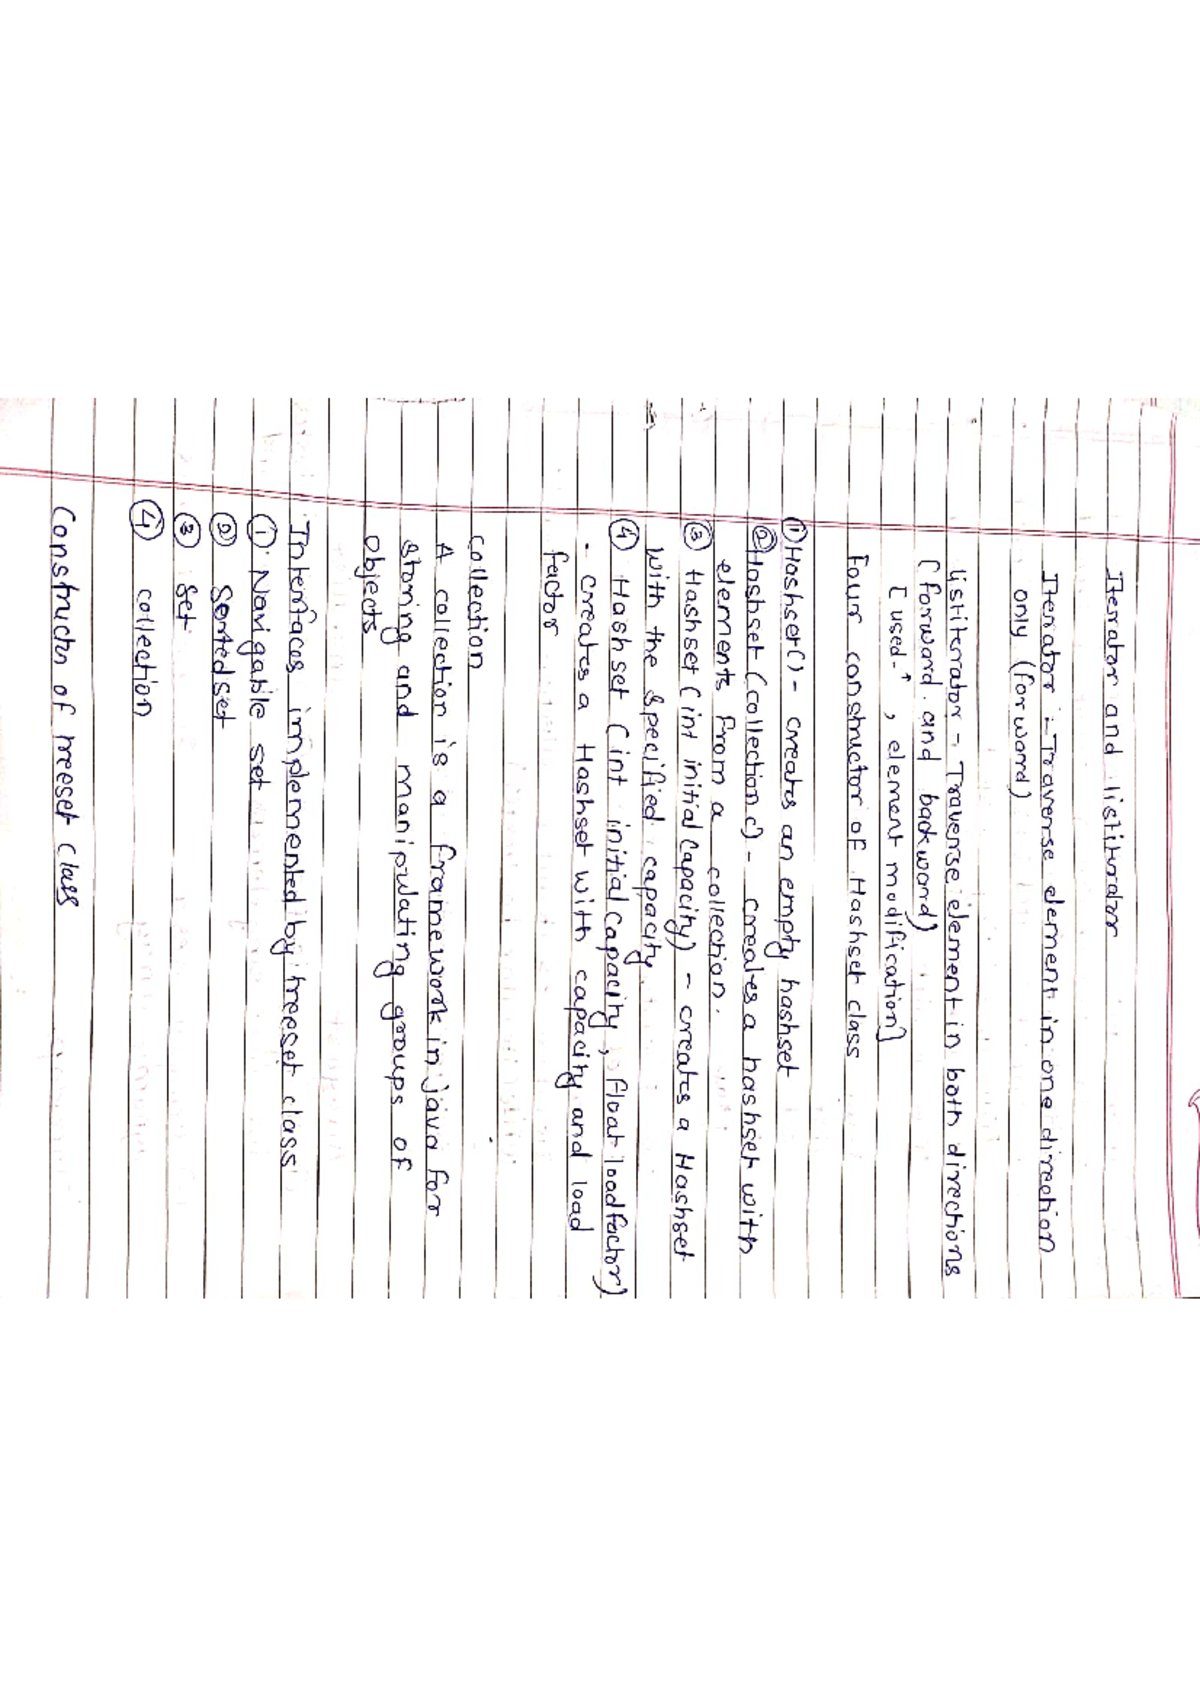 Iterator and listiterator
Iterator :- Traverse element in one direction
only (forward)
listiterrator - Traverse element in both directions
(forward and backward)
[used ↑, element modification]
Four constructor of Hashset class
① Hashset() - creates an empty hashset
② Hashset (collection c) - creates a hashset with
elements from a collection.
③ Hashset (int initial capacity) - creates a Hashset
with the specified capacity
④ Hashset (int initial capacity, float loadfactor)
- creates a Hashset with capacity and load
factor
collection
A collection is a framework in java for
storing and manipulating groups of
objects
Interfaces implemented by treeset class
① Navigable set
② Sorted set
③ Set
④ collection
Constructor of treeset class